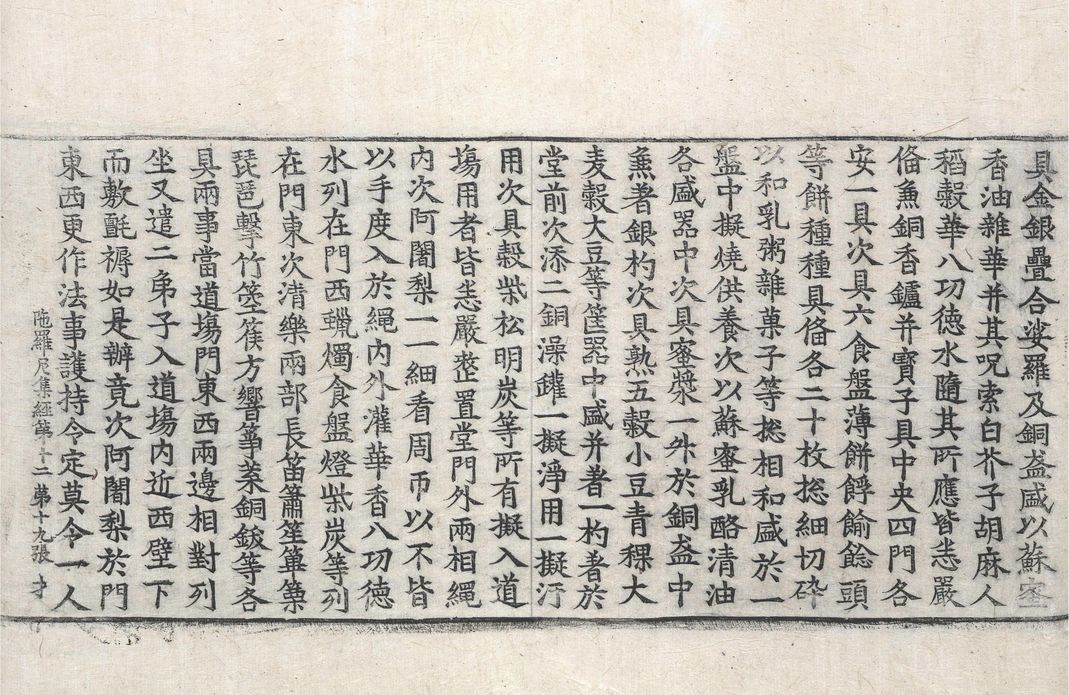 具金銀疊合娑羅及銅盆盛以蘇蜜
香油雜華并其呪索白芥子胡麻人
稻穀華八功德水隨其所應皆悉嚴
俻魚銅香鑪并寶子具中央四門各
安一具次具六食盤薄餅餑餉餤頭
等餅種種具俻各二十枚捴細切碎
以和乳粥雜菓子等捴相和盛於一
盤中擬燒供養次以蘇蜜乳酪清油
各盛器中次具蜜漿一升於銅盆中
魚著銀杓次具熟五穀小豆青稞大
麦穀大豆等筐器中盛并著一杓著於
堂前次添二銅澡罐一擬淨用一擬汙
用次具穀柴松明炭等所有擬入道
塲用者皆悉嚴整置堂門外兩相繩
内次阿闍梨一一細看周帀以不皆
以手度入於繩内外灌華香八功德
水列在門西蠟燭食盤燈柴炭等列
在門東次清樂兩部長笛簫笙篳篥
琵琶擊竹箜篌方響筝葉銅鈸等各
具兩事當道塲門東西兩邊相對列
坐又遣二弟子入道塲内近西壁下
而敷氈褥如是辦竟次阿闍梨於門
東西更作法事護持令定莫令一人
陁羅尼集經第十二 第十九張 才